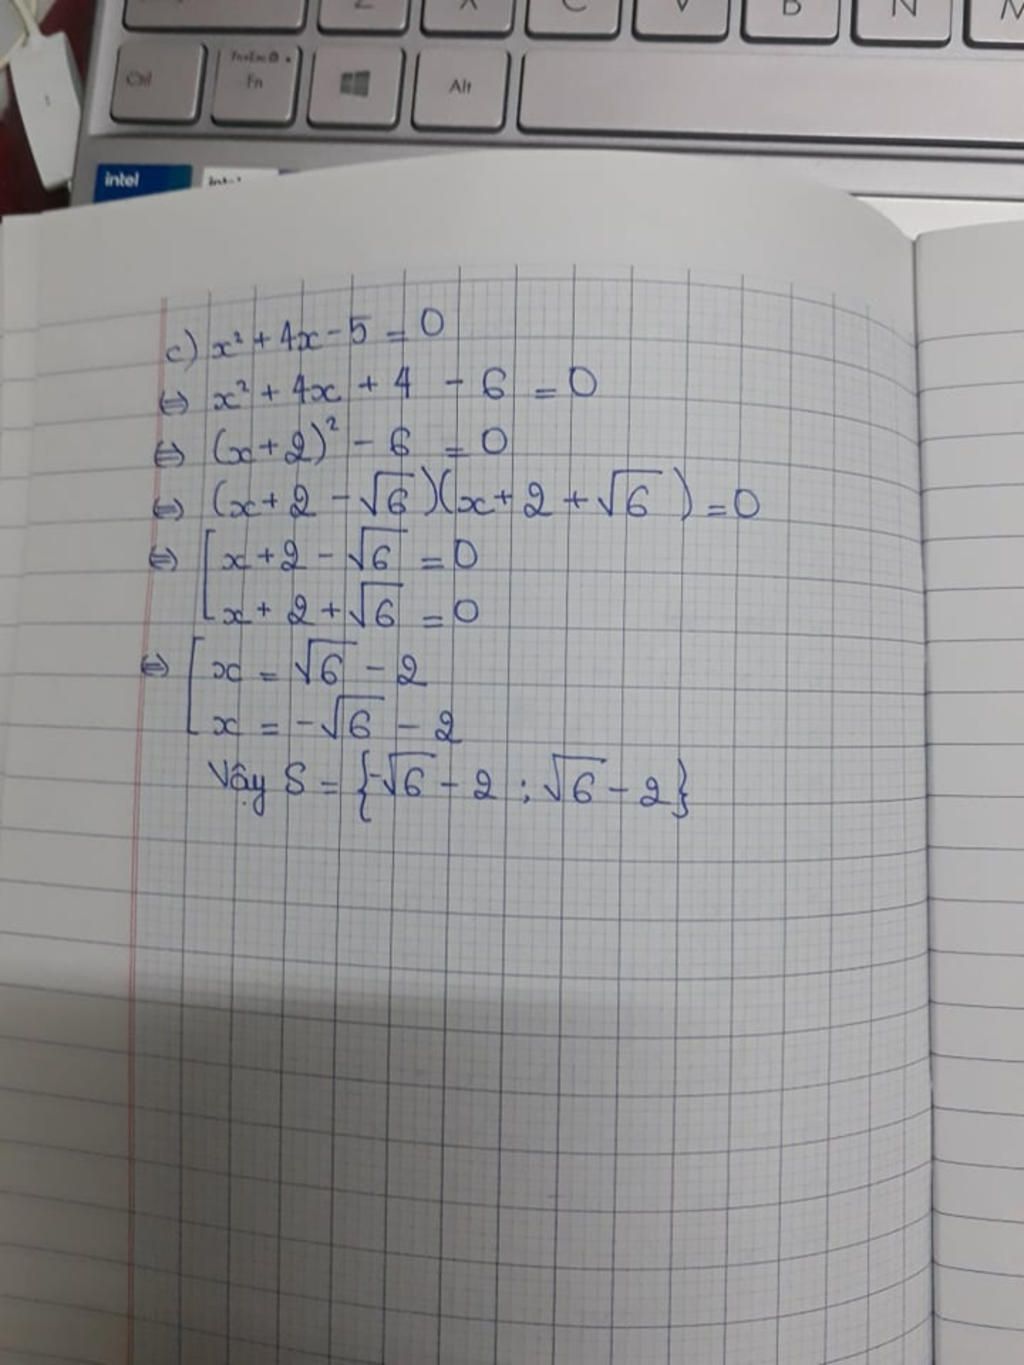 Z X C V B N M
Ctrl Fn Alt
intel
c) x² + 4x - 5 = 0
⇔ x² + 4x + 4 - 6 = 0
⇔ (x + 2)² - 6 = 0
⇔ (x + 2 - √6)(x + 2 + √6) = 0
⇔ [ x + 2 - √6 = 0
x + 2 + √6 = 0
⇔ [ x = √6 - 2
x = -√6 - 2
Vậy S = {-√6 - 2 ; √6 - 2}